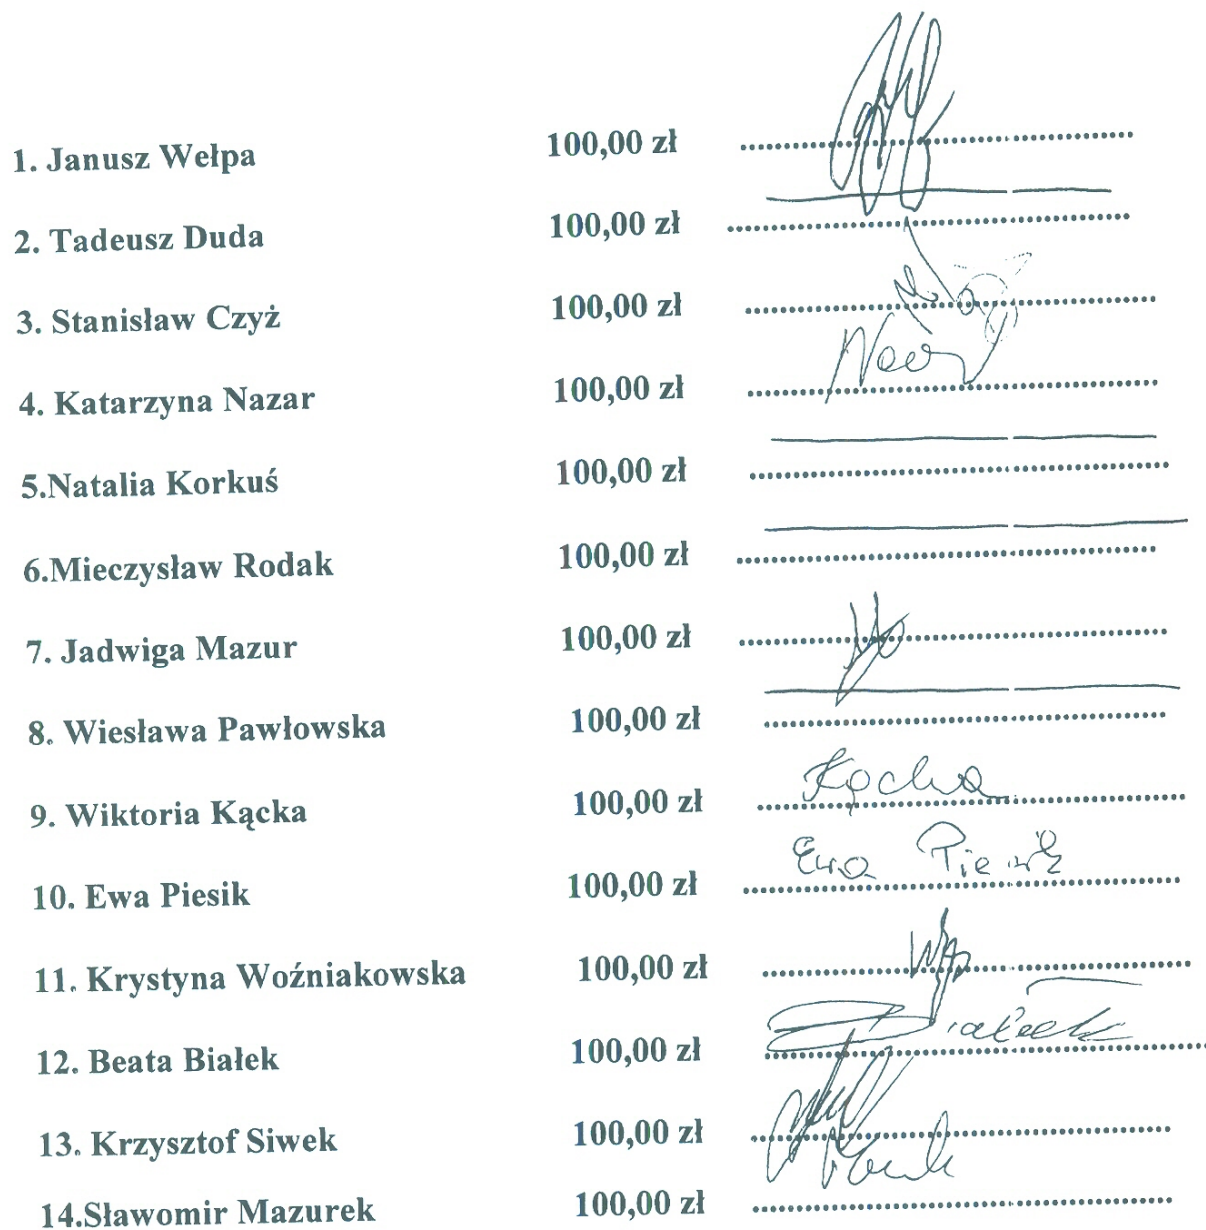 1. Janusz Wełpa 100,00 zł
2. Tadeusz Duda 100,00 zł
3. Stanisław Czyż 100,00 zł
4. Katarzyna Nazar 100,00 zł
5.Natalia Korkuś 100,00 zł
6.Mieczysław Rodak 100,00 zł
7. Jadwiga Mazur 100,00 zł
8. Wiesława Pawłowska 100,00 zł
9. Wiktoria Kącka 100,00 zł Kącka
10. Ewa Piesik 100,00 zł Ewa Piesik
11. Krystyna Woźniakowska 100,00 zł
12. Beata Białek 100,00 zł Białek
13. Krzysztof Siwek 100,00 zł
14.Sławomir Mazurek 100,00 zł